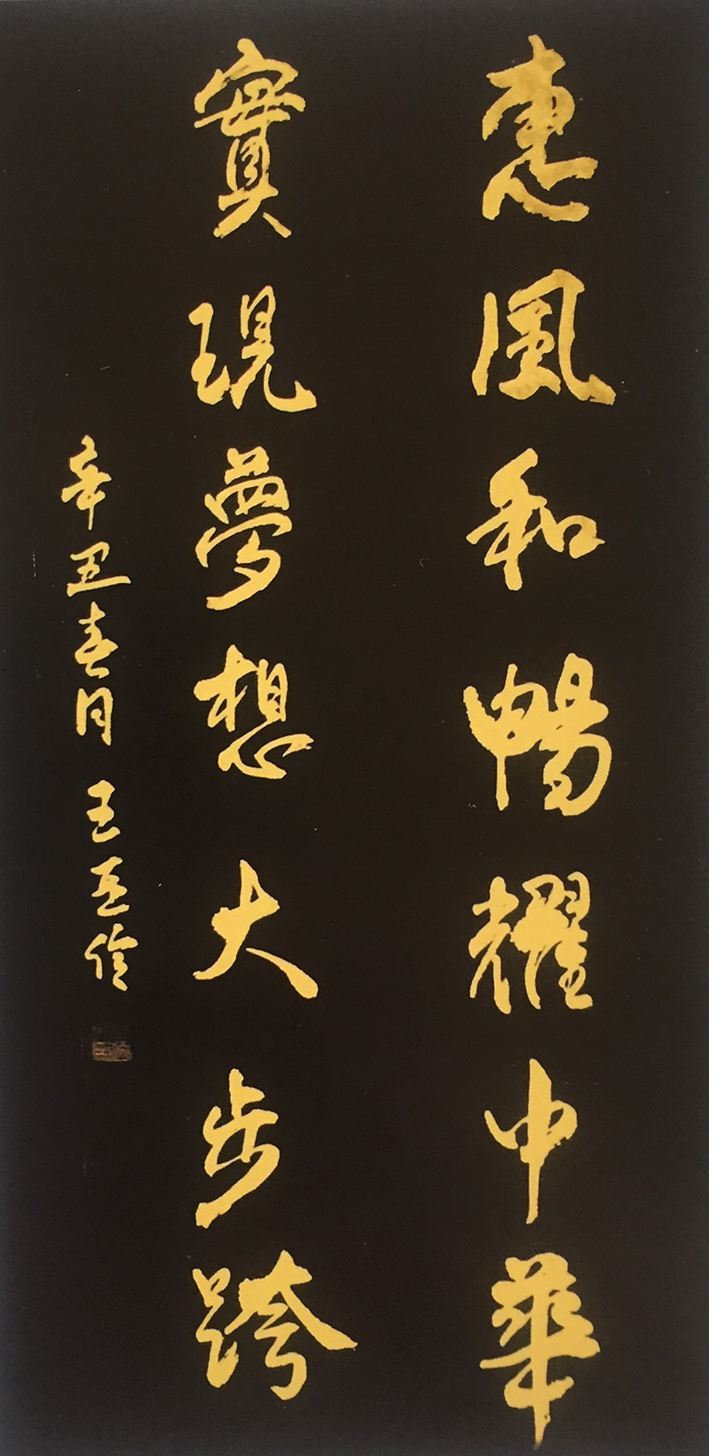 惠風和暢耀中華
實現夢想大步跨
辛丑春月 王玉伶